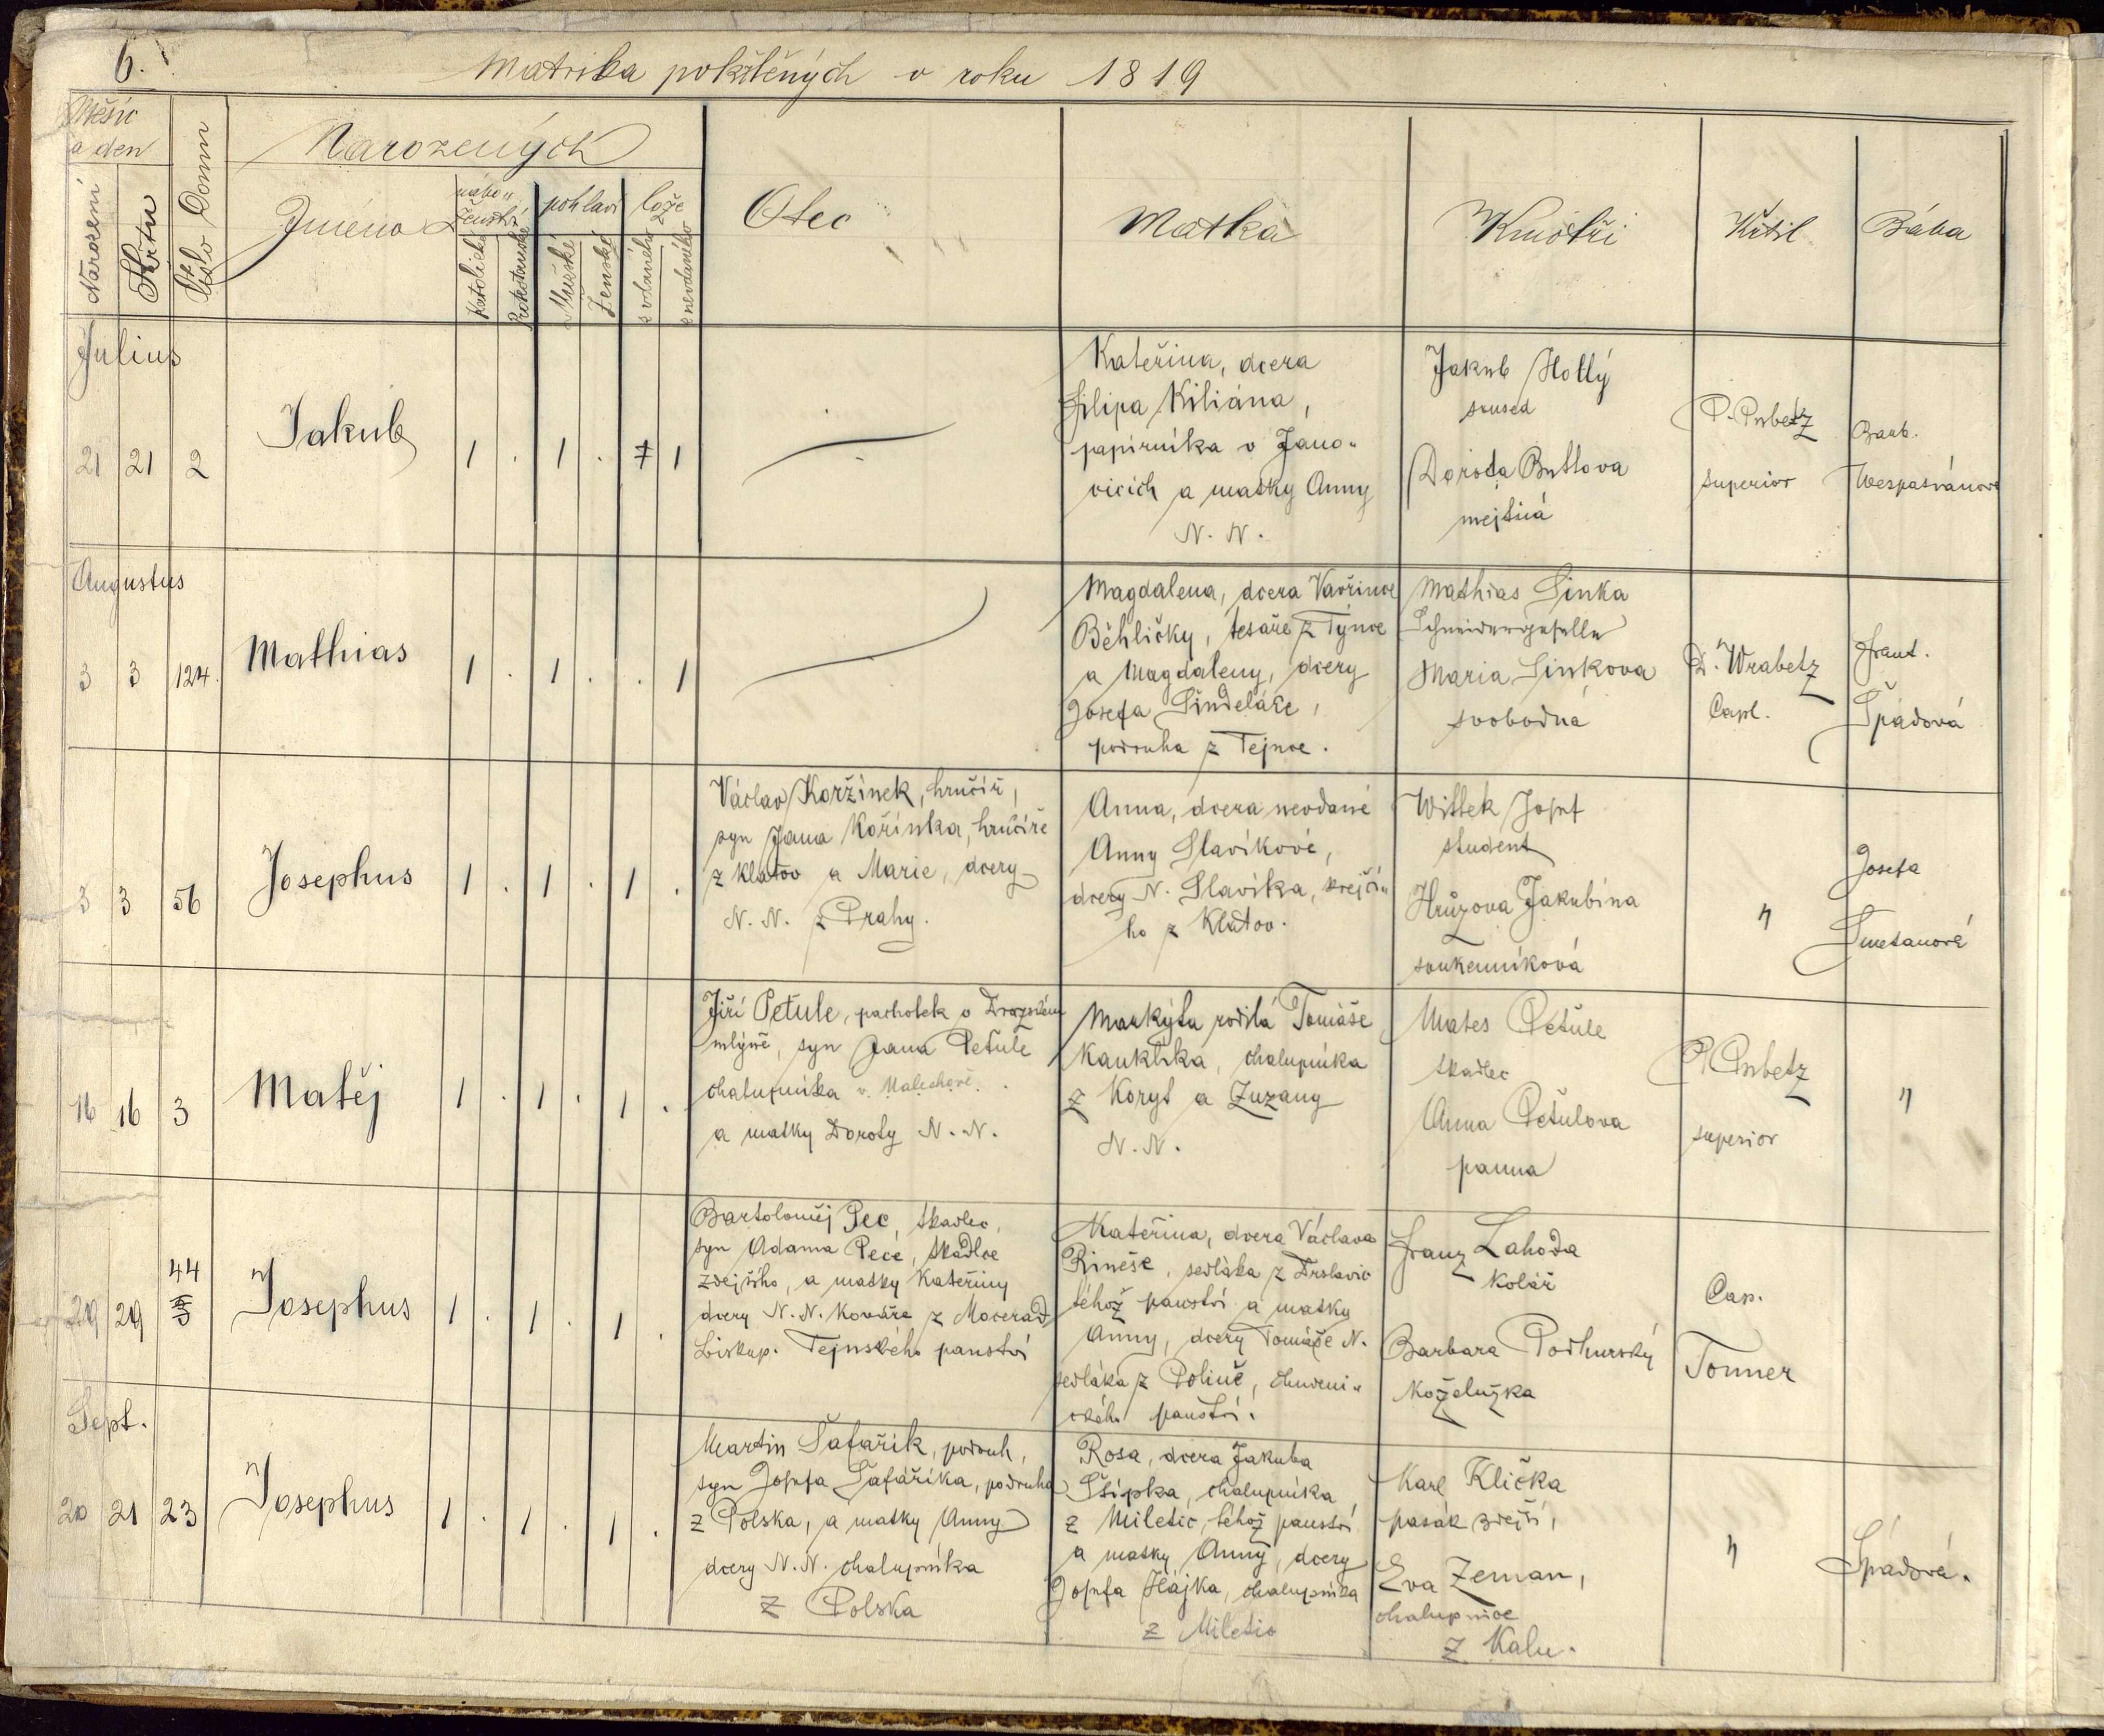 6.
Matrika pokřtěných v roku 1819
Měsíc
a den
Narození
Křtu
Číslo Domu
Narozených
Jméno
nábo„
ženství
katolické
Protestanské
pohlaví
Mužské
Ženské
lože
z vdaného
z nevdaného
Otec
Matka
Kmotři
Křtil
Bába
Julius
21 21 2
Jakub
1 . 1 . 1
Kateřina, dcera
Filipa Kiliána,
papírníka v Jano„
vicích a matky Anny
N. N.
Jakub Hollý
soused
Dorota Butlova
mejtná
P. Prbetz
superior
Barb.
Wespasiánova
Augustus
3 3 124.
Mathias
1 . 1 . . 1
Magdalena, dcera Vavřince
Běhličky, tesaře z Týnce
a Magdaleny, dcery
Josefa Šindeláře,
podruha z Tejnce.
Mathias Sinka
Schneidergeselle
Maria Sinkova
svobodná
P. Wrabetz
Capl.
Frant.
Špádová
3 3 56
Josephus
1 . 1 . 1 .
Václav Koržínek, hrnčíř,
syn Jana Kořínka, hrnčíře
z Klatov a Marie, dcery
N. N. z Prahy.
Anna, dcera nevdané
Anny Slavíkové,
dcery N. Slavíka, krejčí„
ho z Klatov.
Wittek Josef
student
Hrůzova Jakubina
soukenníková
"
Josefa
Smetanové
16 16 3
Matěj
1 . 1 . 1 .
Jiří Petule, pacholek v
mlýně, syn Jana Petule
chalupníka v Malechově.
a matky Doroty N. N.
Markýta rodilá Tomáše
chalupníka
z Koryt a Zuzany
N. N.
Mates Petule
tkadlec
Anna Petulova
panna
P. Prbetz
superior
"
29 29 44
Josephus
1 . 1 . 1 .
Bartoloměj Pec, tkadlec,
syn Adama Pecé, tkadlce
zdejšího, a matky Kateřiny
dcery N. N. Kováře z Mocerad
biskup. Tejnského panství
Kateřina, dcera Václava
Rineše, sedláka z Drslavic
téhož panství a matky
Anny, dcery Tomáše N.
sedláka z Polině, chudeni„
ckého panství.
Franz Lahoda
kolář
Barbara Podhurský
Koželužka
Cap.
Tonner
Sept.
20 21 23
Josephus
1 . 1 . 1 .
Martin Šafařík, podruh,
syn Josefa Šafaříka, podruha
z Polska, a matky Anny
dcery N. N. chalupníka
z Polska
Rosa, dcera Jakuba
Štípka, chalupníka
z Miletic, téhož panství
a matky Anny, dcery
Josefa Hájka, chalupníka
z Miletic
Karl Klička
pasák zdejší,
Eva Zeman,
chalupnice
z Kalu.
"
Špádová.